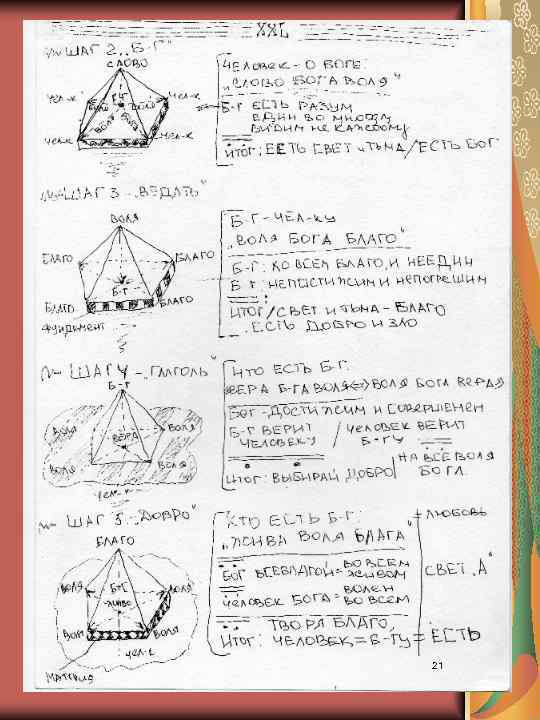 XXL
ШАГ 2 „Б-Г"
СЛОВО
ЧЕЛ-К
ЧЕЛ-К
Б-Г
ВОЛЯ
ВОЛЯ
ЧЕЛ-К
ЧЕЛ-К
ЧЕЛОВЕК - О БОГЕ:
„СЛОВО БОГА ВОЛЯ"
Б-Г ЕСТЬ РАЗУМ
ЕДИН ВО МНОГОМ
ВИДИМ НЕ КАЖДОМУ
ИТОГ: ЕСТЬ СВЕТ И ТЬМА/ЕСТЬ БОГ
ШАГ 3 - „ВЕДАТЬ"
ВОЛЯ
БЛАГО
БЛАГО
Б-Г
БЛАГО
БЛАГО
ФУНДАМЕНТ
Б-Г - ЧЕЛ-КУ
„ВОЛЯ БОГА БЛАГО"
Б-Г: КО ВСЕМ БЛАГО, И НЕЕДИН
Б-Г: НЕПОСТИЖИМ И НЕПОГРЕШИМ
ИТОГ/СВЕТ И ТЬМА - БЛАГО
ЕСТЬ ДОБРО И ЗЛО
ШАГ 4 - „ГЛАГОЛЬ"
Б-Г
ВОЛЯ
ВОЛЯ
ВЕРА
ВОЛЯ
ВОЛЯ
ЧЕЛ-К
ЧТО ЕСТЬ Б-Г:
ВЕРА Б-ГА ВОЛЯ<=>ВОЛЯ БОГА ВЕРА
БОГ - ДОСТИЖИМ И СОВЕРШЕНЕН
Б-Г ВЕРИТ ЧЕЛОВЕКУ / ЧЕЛОВЕК ВЕРИТ Б-ГУ
ИТОГ: ВЫБИРАЙ ДОБРО | НА ВСЕ ВОЛЯ БОГА
ШАГ 5 - „ДОБРО"
БЛАГО
ВОЛЯ
ВОЛЯ
Б-Г
ЖИВО
ВОЛЯ
ВОЛЯ
ЧЕЛ-К
МАТЕРИЯ
КТО ЕСТЬ Б-Г:
+ ЛЮБОВЬ
„ЖИВА ВОЛЯ БЛАГА"
БОГ ВСЕБЛАГОЙ = ВО ВСЕМ ЖИВОМ
СВЕТ „А"
ЧЕЛОВЕК БОГА = ВОЛЕН ВО ВСЕМ
ТВОРЯ БЛАГО,
ИТОГ: ЧЕЛОВЕК = Б-ГУ = ЕСТЬ
21